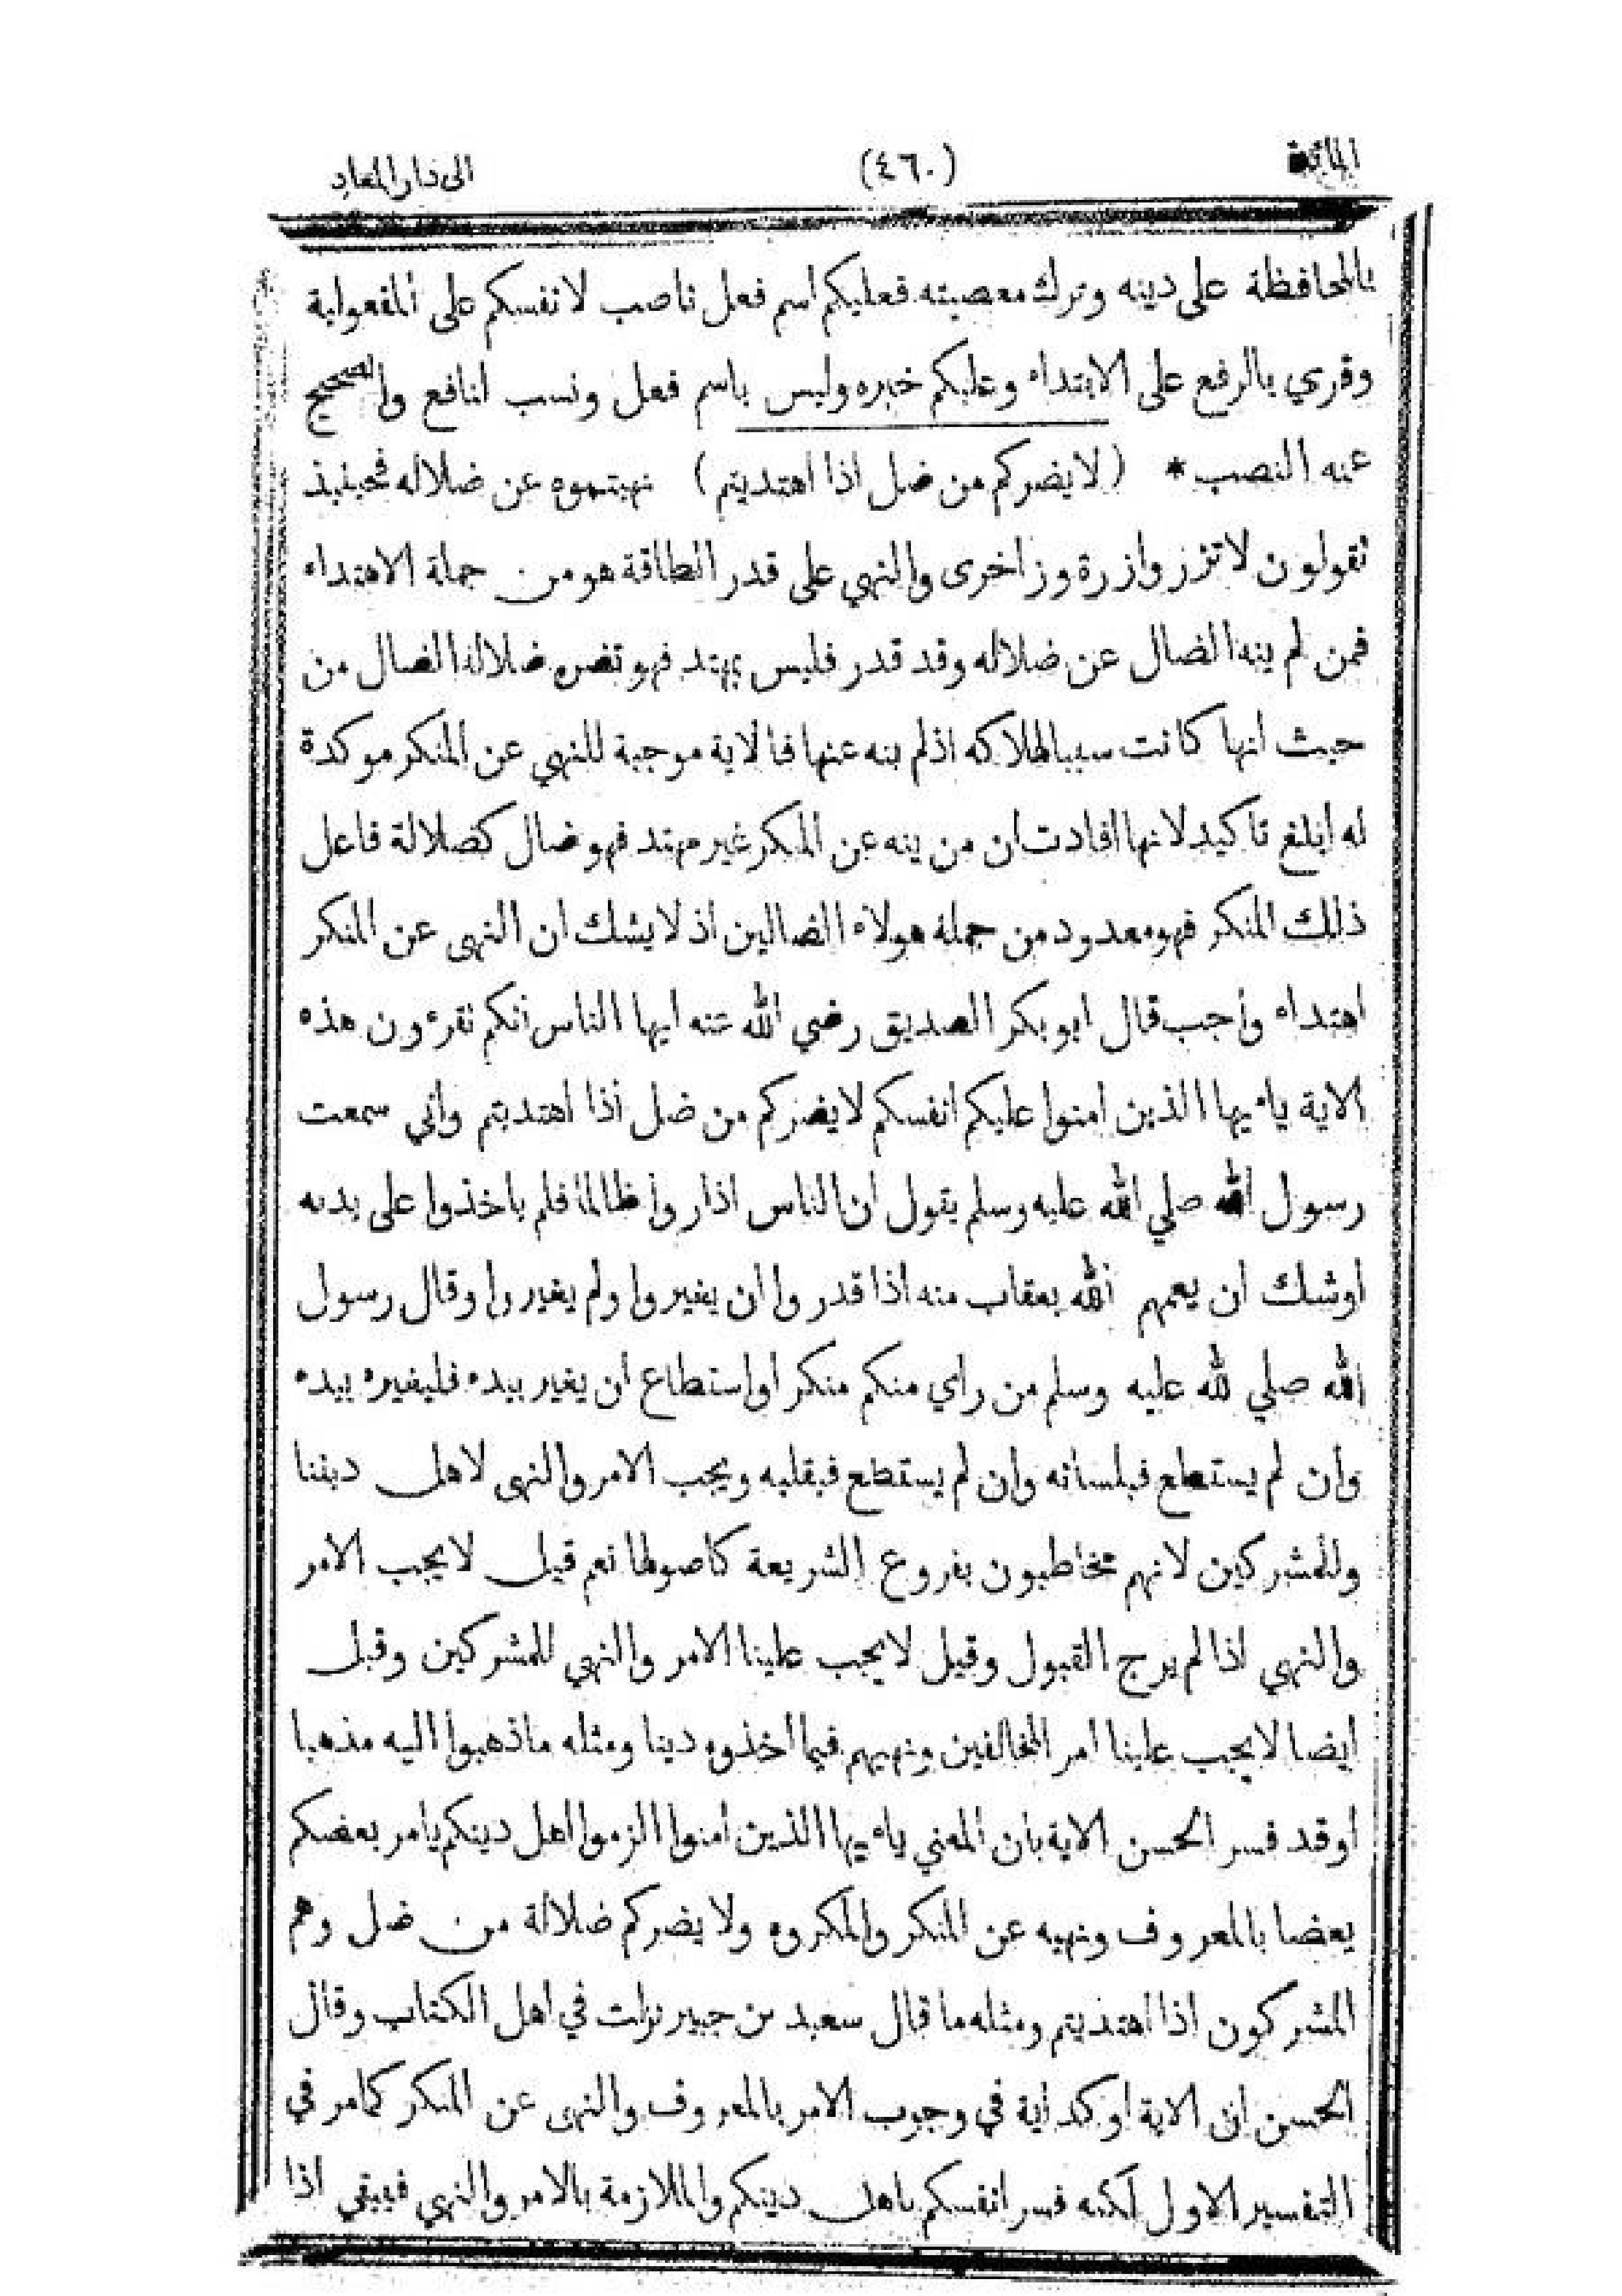 المائدة (٤٦٠) الى دار المعاد
بالمحافظة على دينه وترك معصيته فعليكم اسم فعل ناصب لانفسكم على المفعولية
وقري بالرفع على الابتداء وعليكم خبره وليس باسم فعل ونسب لنافع والصحيح
عنه النصب * (لا يضركم من ضل اذا اهتديتم) نهيتموه عن ضلاله فحينيذ
تقولون لا تزر وازرة وزر اخرى والنهي على قدر الطاقة هو من جملة الاهتداء
فمن لم ينه الضال عن ضلاله وقد قدر فليس بمهتد فهو تضره ضلالة الضال من
حيث انها كانت سببا لهلاكه اذ لم ينه عنها فالاية موجبة للنهي عن المنكر موكدة
له ابلغ تاكيد لانها افادت ان من ينه عن المكر غير مهتد فهو ضال كضلالة فاعل
ذلك المنكر فهو معدود من جملة هولاء الضالين اذ لا يشك ان النهى عن المنكر
اهتداء واجب قال ابو بكر الصديق رضي الله عنه ايها الناس انكم تقرءون هذه
الاية ياءيها الذين امنوا عليكم انفسكم لا يضركم من ضل اذا اهتديتم واني سمعت
رسول الله صلي الله عليه وسلم يقول ان الناس اذا راوا ظالما فلم ياخذوا على يديه
اوشك ان يعمهم الله بعقاب منه اذا قدروا ان يغيروا ولم يغيروا وقال رسول
الله صلي لله عليه وسلم من راي منكم منكر اواستطاع ان يغير بيده فليغيره بيده
وان لم يستطع فبلسانه وان لم يستطع فبقلبه ويجب الامر والنهى لاهل ديننا
وللمشركين لانهم مخاطبون بفروع الشريعة كاصولها نعم قيل لا يجب الامر
والنهي اذا لم يرج القبول وقيل لا يجب علينا الامر والنهي للمشركين وقيل
ايضا لا يجب علينا امر المخالفين ونهيهم فيما اخذوه دينا ومثله ما ذهبوا اليه مذهبا
اوقد فسر الحسن الاية بان المعني ياءيها الذين امنوا الزموا اهل دينكم يامر بعضكم
بعضا بالمعروف ونهيه عن المنكر والمكروه ولا يضركم ضلالة من ضل وهم
المشركون اذا اهتديتم ومثله ما قال سعيد بن جبير نزلت في اهل الكتاب وقال
الحسن ان الاية اوكد اية في وجوب الامر بالمعروف والنهى عن المنكر كما مر في
التفسير الاول لكنه فسر انفسكم باهل دينكم والملازمة بالامر والنهي فيبقي اذا